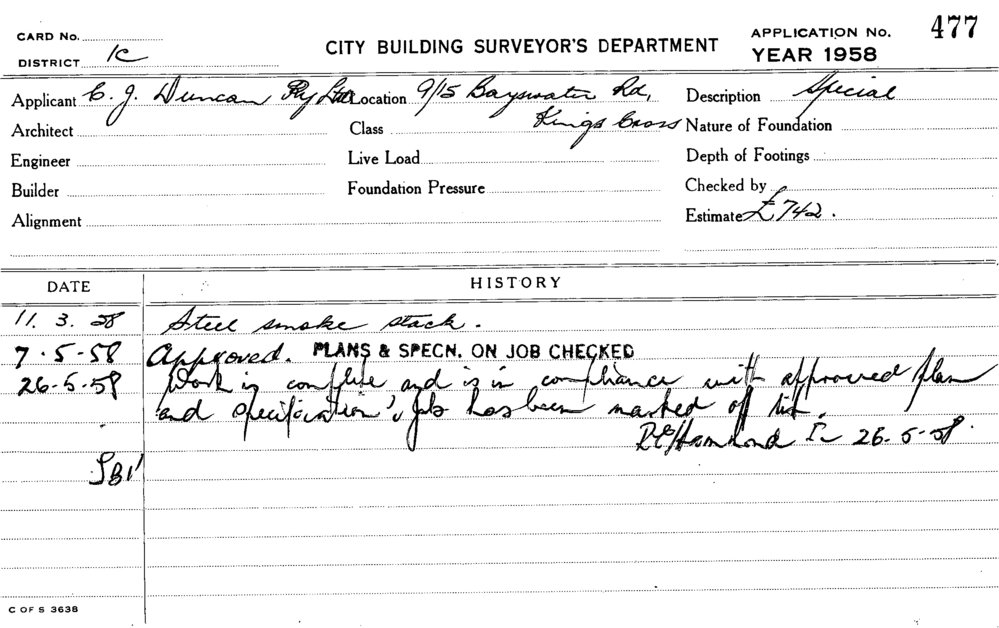 CARD No. APPLICATION No. 477
CITY BUILDING SURVEYOR'S DEPARTMENT
DISTRICT 1C YEAR 1958
Applicant C. J. Duncan Pty Ltd Location 9/15 Bayswater Rd, Description Special
Architect Class Kings Cross Nature of Foundation
Engineer Live Load Depth of Footings
Builder Foundation Pressure Checked by
Alignment Estimate £742.
DATE HISTORY
11. 3. 58 Steel smoke stack.
7.5-58 Approved. PLANS & SPECN. ON JOB CHECKED
26-5-58 Work is complete and is in compliance with approved plan
and specification, Job has been marked off list.
R E Hammond 26-5-58.
C OF S 3638